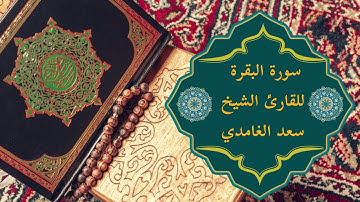 سورة البقرة
للقارئ الشيخ
سعد الغامدي